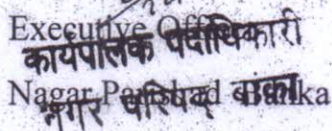 Executive Officer
कार्यपालक पदाधिकारी
Nagar Parishad Banka
नगर परिषद् बांका